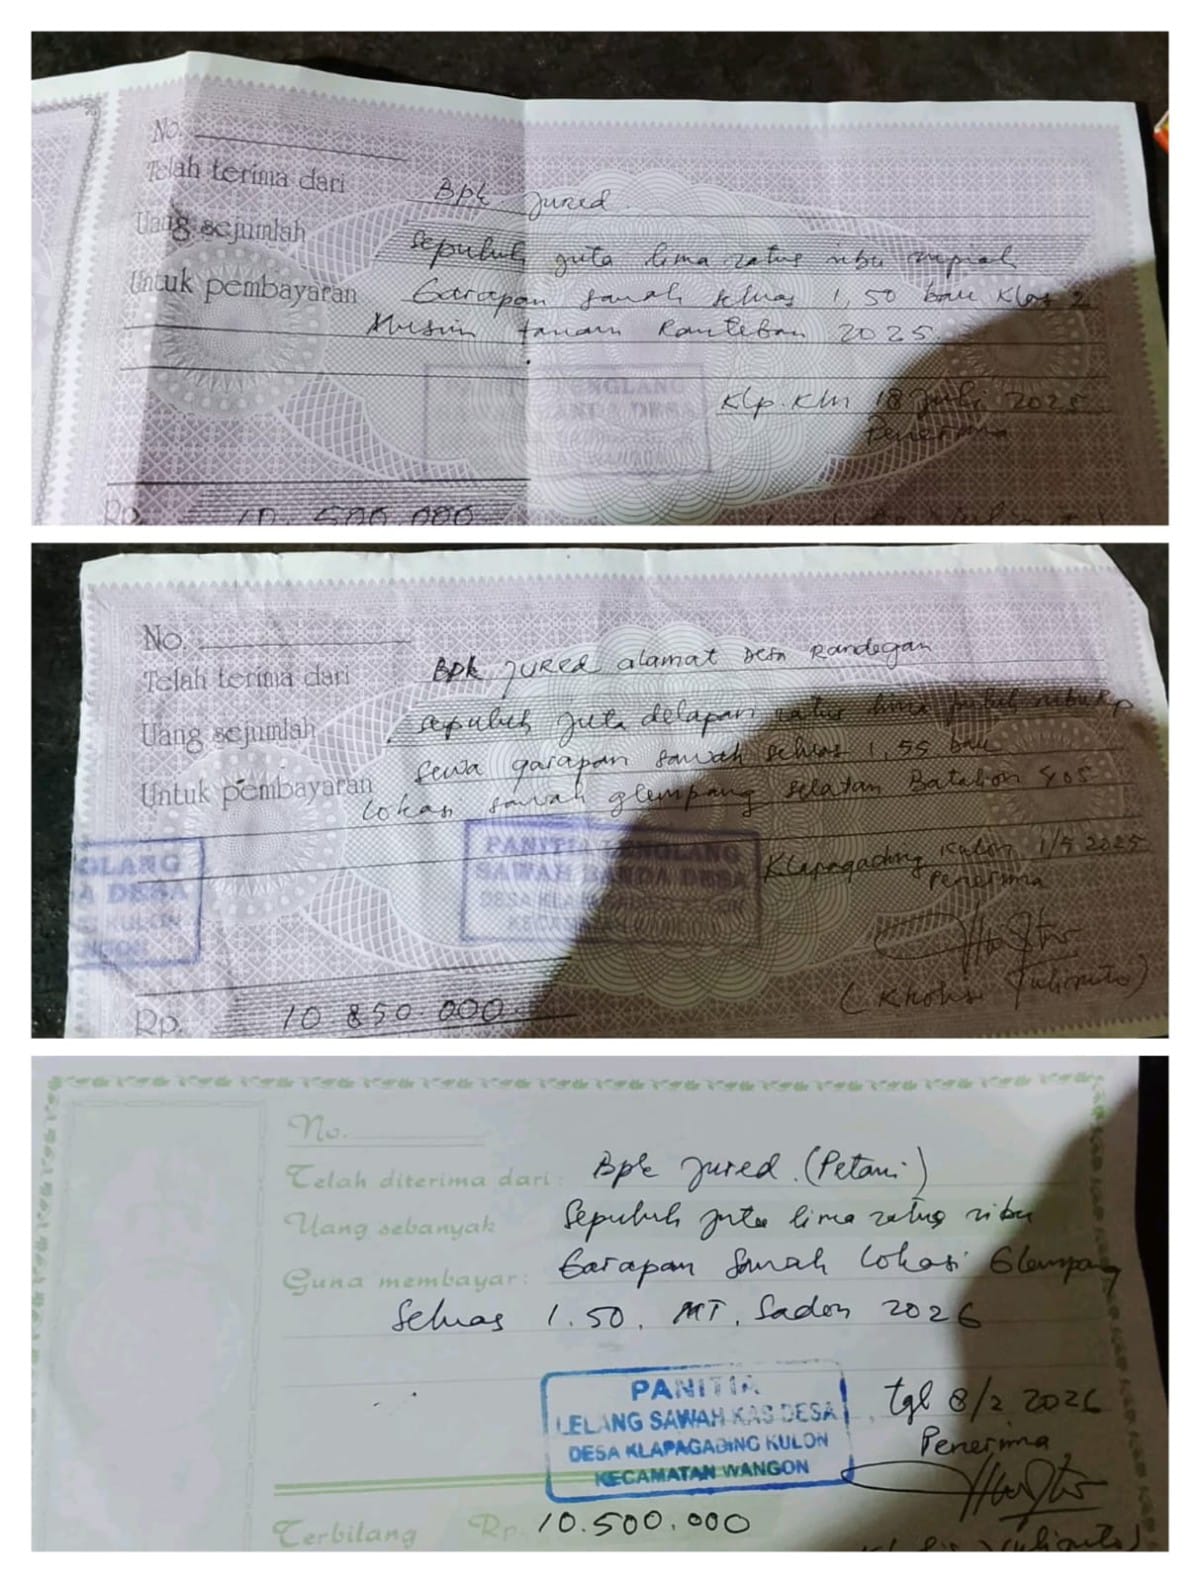 No.
Telah terima dari Bpk. Jured.
Uang sejumlah sepuluh juta lima ratus ribu rupiah
Untuk pembayaran Garapan sawah seluas 1,50 bau Klas 2
Musim tanam Ranteban 2025
ENGLANG
ANDA DESA
Klp. Kln 18 Juli 2025
Penerima
Rp. 10.500.000
No.
Telah terima dari Bpk Jured alamat Desa Randegan
Uang sejumlah sepuluh juta delapan ratus lima puluh ribu Rp
Untuk pembayaran Sewa garapan sawah seluas 1,55 bau
Lokasi sawah glempang selatan Batalion 405
GLANG
A DESA
KULON
NGON
PANITIA PENGLANG
SAWAH BANDA DESA
DESA KLAPAGADING KULON
KECAMATAN WANGON
Klapagading Kulon 1/5 2025
Penerima
Rp. 10.850.000
No.
Telah diterima dari: Bpk Jured. (Petani)
Uang sebanyak Sepuluh juta lima ratus ribu
Guna membayar: Garapan Sawah Lokasi Glempang
Seluas 1.50. MT. Sadon 2026
PANITIA
LELANG SAWAH KAS DESA
DESA KLAPAGADING KULON
KECAMATAN WANGON
tgl 8/2 2026
Penerima
Terbilang Rp. 10.500.000